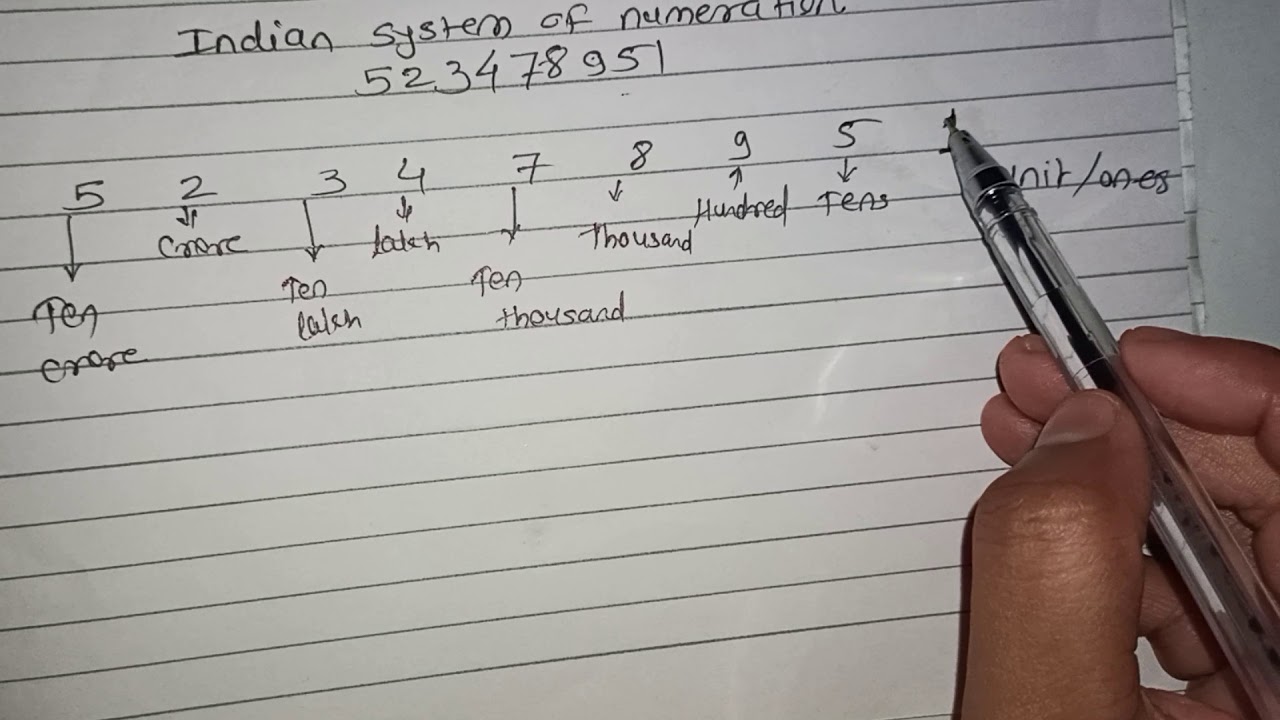 Indian system of numeration
523478951
5 2 3 4 7 8 9 5
Crore lakh Thousand Hundred Tens unit/ones
Ten crore
Ten lakh
Ten thousand